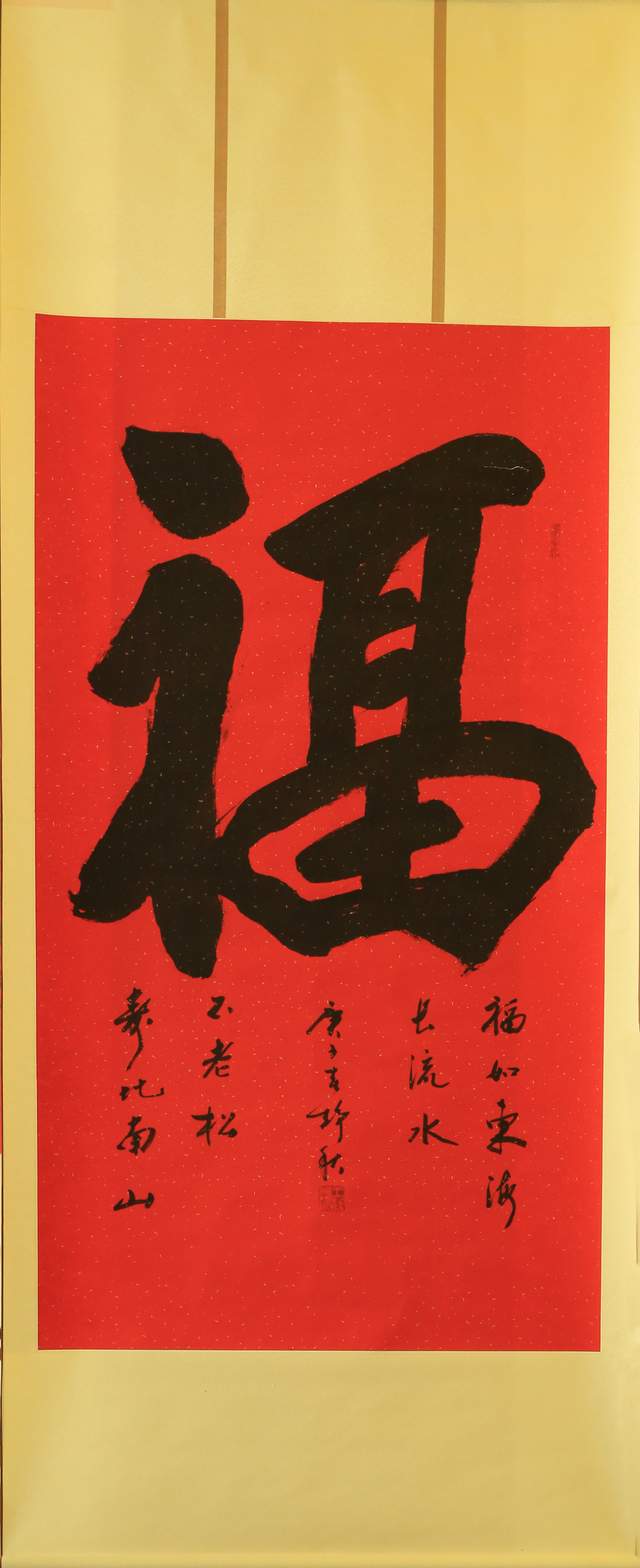 福
福如東海
长流水
寿比南山
不老松
庚子吉秋